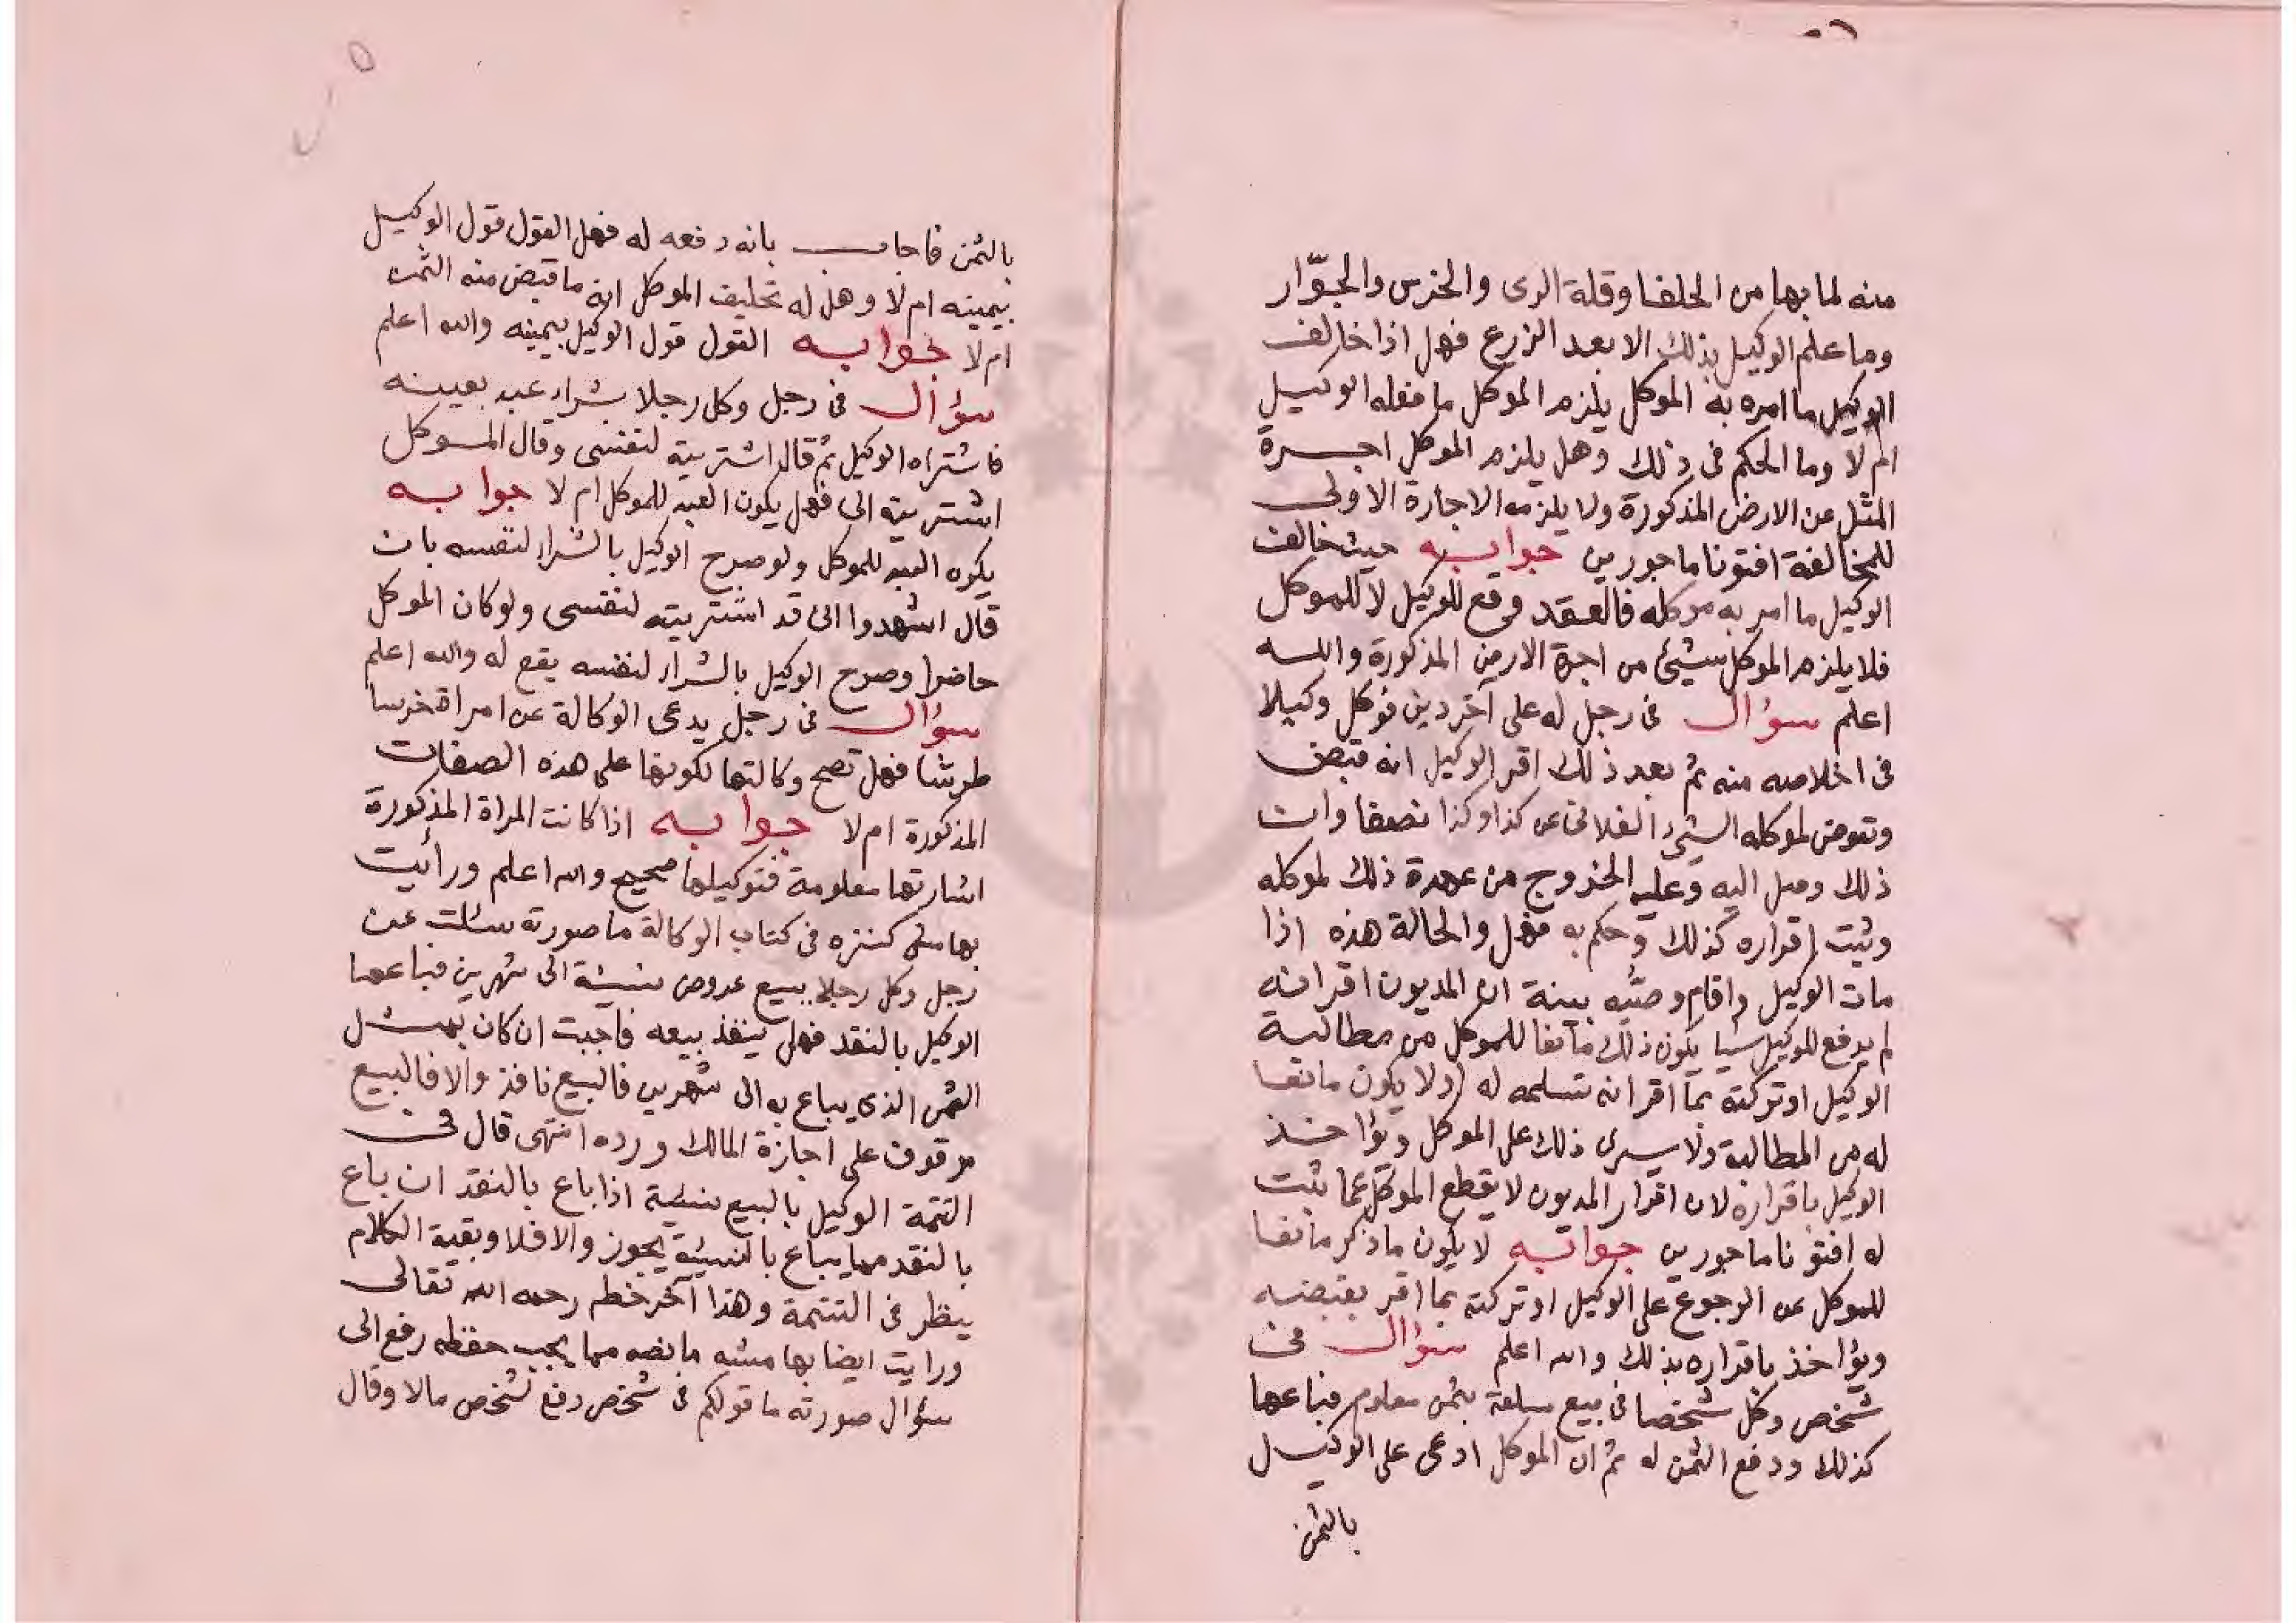 منه لما بها من الحلفا وقلة الرى والخرس والجوّار
وما علم الوكيل بذلك الا بعد الزرع فهل اذا خالف
الوكيل ما امره به الموكل يلزم الموكل ما فعله الوكيل
ام لا وما الحكم فى ذلك وهل يلزم الموكل اجرة
المثل عن الارض المذكورة ولا يلزمه الاجارة الاولى
للمخالفة افتونا ماجورين جوابه حيث خالف
الوكيل ما امر به موكله فالعقد وقع للوكيل لا للموكل
فلا يلزم الموكل شيئ من اجرة الارض المذكورة والله
اعلم سؤال فى رجل له على آخر دين فوكل وكيلا
فى اخلاصه منه ثم بعد ذلك اقر الوكيل انه قبض
وتعوض لموكله الشيئ الفلانى عن كذا وكذا نصفا وان
ذلك وصل اليه وعليه الخروج من عهدة ذلك لموكله
وثبت اقراره كذلك وحكم به فهل والحالة هذه اذا
مات الوكيل واقام وصيّه بينة ان المديون اقر انه
لم يدفع للوكيل شيا يكون ذلك مانعا للموكل من مطالبة
الوكيل او تركته بما اقر انه تسلمه له اولا يكون مانعا
له من المطالبة ولا يسرى ذلك على الموكل ويؤاخذ
الوكيل باقراره لان اقرار المديون لا يقطع الموكل عما يثبت
له افتونا ماجورين جوابه لا يكون ما ذكر مانعا
للموكل عن الرجوع على الوكيل او تركته بما اقر بقبضه
ويؤاخذ باقراره بذلك والله اعلم سؤال فى
شخص وكل شخصا فى بيع سلعة بثمن معلوم فباعها
كذلك ودفع الثمن له ثم ان الموكل ادعى على الوكيل
بالثمن
بالثمن فاجاب بانه دفعه له فهل القول قول الوكيل
بيمينه ام لا وهل له تحليف الموكل انه ما قبض منه الثمن
ام لا جوابه القول قول الوكيل بيمينه والله اعلم
سؤال فى رجل وكل رجلا بشراء عبد بعينه
فاشتراه الوكيل ثم قال اشتريته لنفسى وقال الموكل
اشتريته الى فهل يكون العبد للموكل ام لا جوابه
يكون العبد للموكل ولو صرح الوكيل بالشراء لنفسه بان
قال اشهدوا انى قد اشتريته لنفسى ولو كان الموكل
حاضرا وصرح الوكيل بالشراء لنفسه يقع له والله اعلم
سؤال فى رجل يدعى الوكالة عن امراة خرسا
طرشا فهل تصح وكالتها لكونها على هذه الصفات
المذكورة ام لا جوابه اذا كانت المراة المذكورة
اشارتها معلومة فتوكيلها صحيح والله اعلم ورأيت
بهامش كنزه فى كتاب الوكالة ما صورته سئلت عن
رجل وكل رجلا ببيع عروض نسيئة الى شهرين فباعها
الوكيل بالنقد فهل ينفذ بيعه فاجبت ان كان بمثل
الثمن الذى يباع به الى شهرين فالبيع نافذ والا فالبيع
موقوف على اجازة المالك ورده انتهى قال فى
التتمة الوكيل بالبيع نسئية اذا باع بالنقد ان باع
بالنقد مما يباع بالنسيئة يجوز والا فلا وبقية الكلام
ينظر فى التتمة وهذا آخر خطه رحمه الله تعالى
ورايت ايضا بهامشه ما نصه مما يجب حفظه رفع الى
سؤال صورته ما قولكم فى شخص دفع لشخص مالا وقال